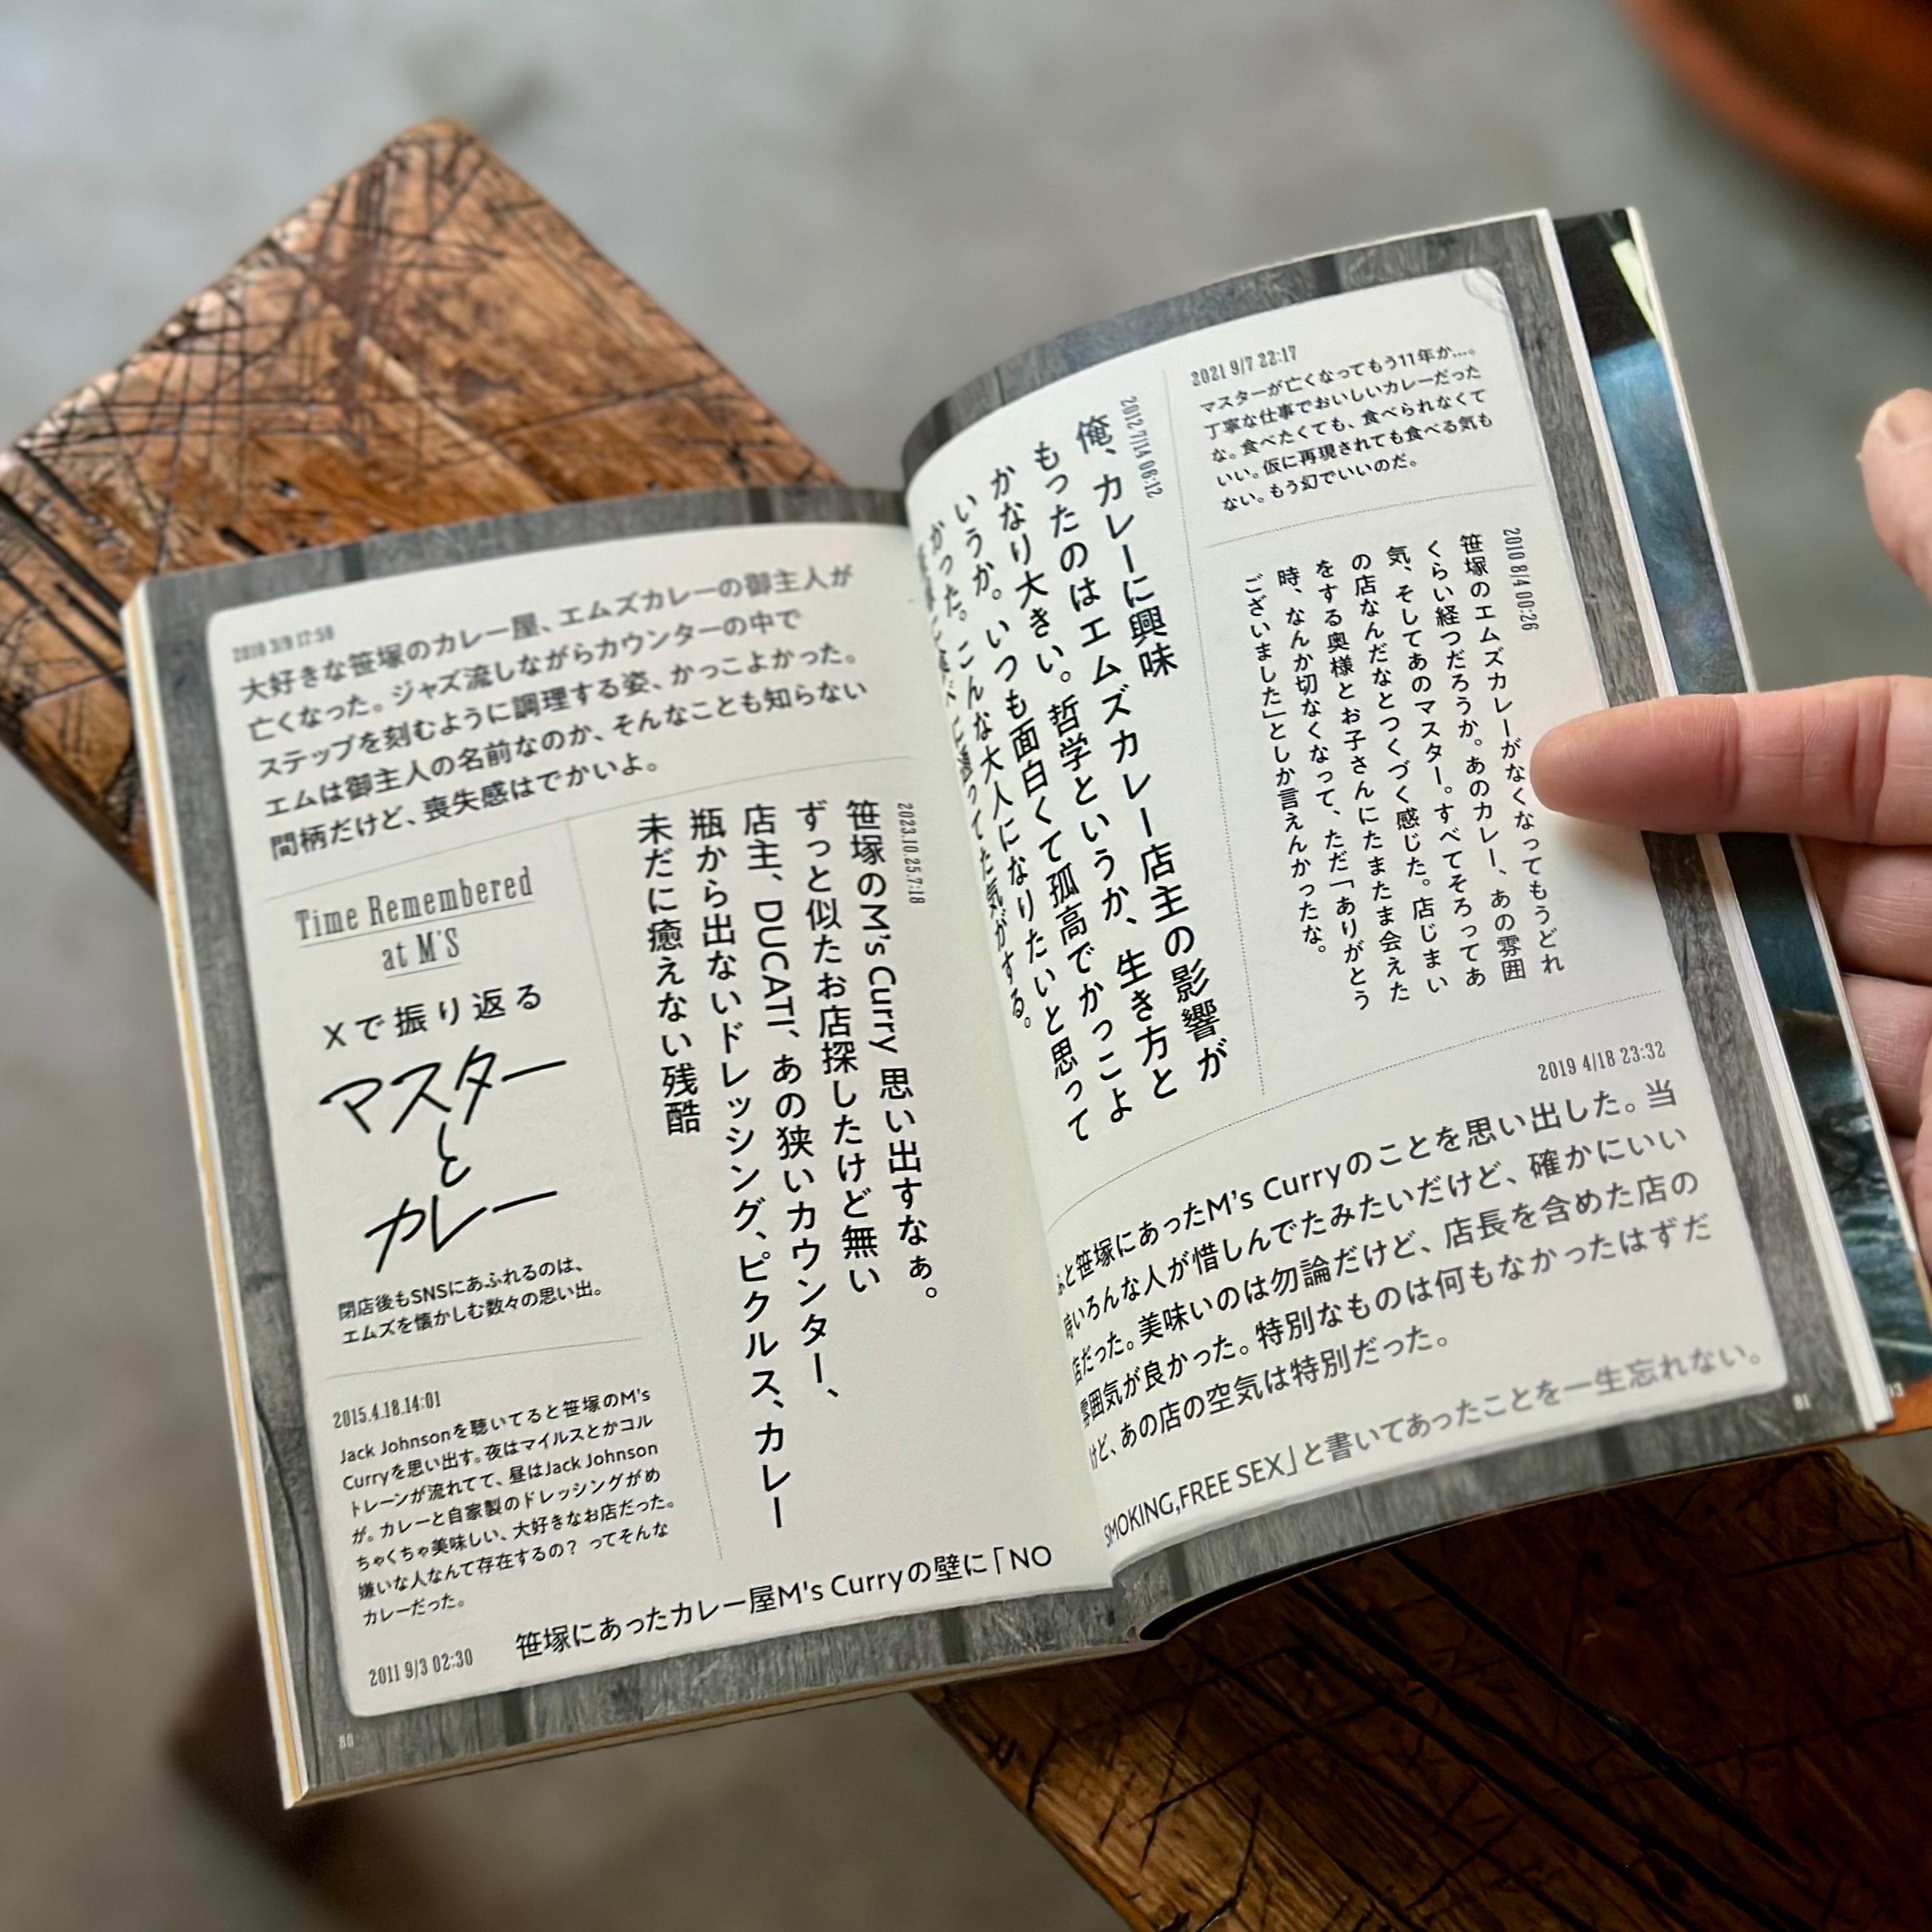 2010 3/9 17:50
大好きな笹塚のカレー屋、エムズカレーの御主人が
亡くなった。ジャズ流しながらカウンターの中で
ステップを刻むように調理する姿、かっこよかった。
エムは御主人の名前なのか、そんなことも知らない
間柄だけど、喪失感はでかいよ。
Time Remembered
at M'S
Xで振り返る
マスター
と
カレー
閉店後もSNSにあふれるのは、
エムズを懐かしむ数々の思い出。
2023.10.25.7:18
笹塚のM's Curry 思い出すなぁ。
ずっと似たお店探したけど無い
店主、DUCATI、あの狭いカウンター、
瓶から出ないドレッシング、ピクルス、カレー
未だに癒えない残酷
2015.4.18.14:01
Jack Johnsonを聴いてると笹塚のM's
Curryを思い出す。夜はマイルスとかコル
トレーンが流れてて、昼はJack Johnson
が。カレーと自家製のドレッシングがめ
ちゃくちゃ美味しい、大好きなお店だった。
嫌いな人なんて存在するの？ ってそんな
カレーだった。
2011 9/3 02:30
笹塚にあったカレー屋M's Curryの壁に「NO
SMOKING,FREE SEX」と書いてあったことを一生忘れない。
80
2021 9/7 22:17
マスターが亡くなってもう11年か…。
丁寧な仕事でおいしいカレーだった
な。食べたくても、食べられなくて
いい。仮に再現されても食べる気も
ない。もう幻でいいのだ。
2012.7/14 06:12
俺、カレーに興味
もったのはエムズカレー店主の影響が
かなり大きい。哲学というか、生き方と
いうか。いつも面白くて孤高でかっこよ
かった。こんな大人になりたいと思って
通ってた気がする。
2010 8/4 00:26
笹塚のエムズカレーがなくなってもうどれ
くらい経つだろうか。あのカレー、あの雰囲
気、そしてあのマスター。すべてそろってあ
の店なんだなとつくづく感じた。店じまい
をする奥様とお子さんにたまたま会えた
時、なんか切なくなって、ただ「ありがとう
ございました」としか言えんかったな。
2019 4/18 23:32
と笹塚にあったM's Curryのことを思い出した。当
時いろんな人が惜しんでたみたいだけど、確かにいい
店だった。美味いのは勿論だけど、店長を含めた店の
雰囲気が良かった。特別なものは何もなかったはずだ
けど、あの店の空気は特別だった。
81